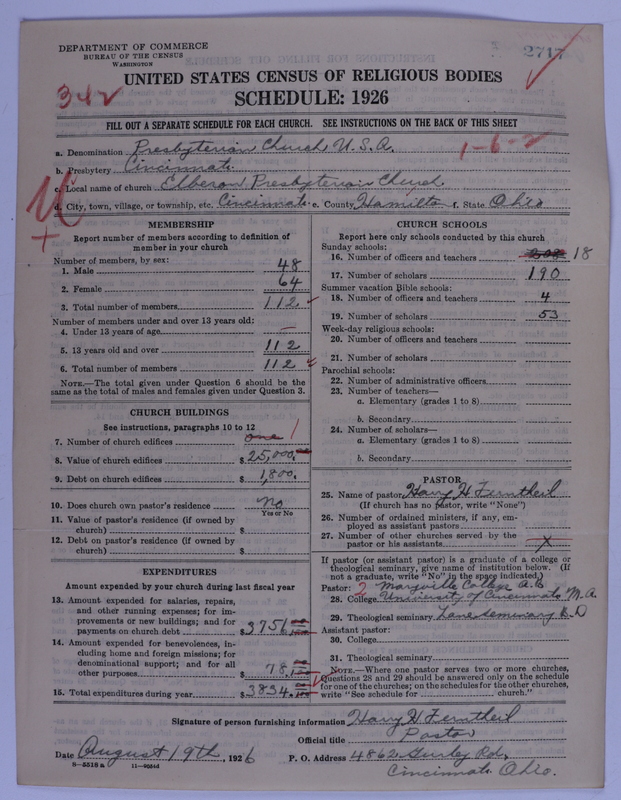 2717
DEPARTMENT OF COMMERCE
BUREAU OF THE CENSUS
WASHINGTON
UNITED STATES CENSUS OF RELIGIOUS BODIES
SCHEDULE: 1926
342
FILL OUT A SEPARATE SCHEDULE FOR EACH CHURCH. SEE INSTRUCTIONS ON THE BACK OF THIS SHEET
a. Denomination Presbyterian Church, U.S.A. 1-6-2
b. Presbytery Cincinnati
c. Local name of church Elberon Presbyterian Church
d. City, town, village, or township, etc. Cincinnati e. County Hamilton f. State Ohio
MEMBERSHIP
Report number of members according to definition of
member in your church
Number of members, by sex:
1. Male 48
2. Female 64
3. Total number of members 112
Number of members under and over 13 years old:
4. Under 13 years of age —
5. 13 years old and over 112
6. Total number of members 112
NOTE.—The total given under Question 6 should be the
same as the total of males and females given under Question 3.
CHURCH BUILDINGS
See instructions, paragraphs 10 to 12
7. Number of church edifices one 1
8. Value of church edifices $25,000.
9. Debt on church edifices $1,800.
10. Does church own pastor's residence No
Yes or No
11. Value of pastor's residence (if owned by
church) $
12. Debt on pastor's residence (if owned by
church) $
EXPENDITURES
Amount expended by your church during last fiscal year
13. Amount expended for salaries, repairs,
and other running expenses; for im-
provements or new buildings; and for
payments on church debt $3756
14. Amount expended for benevolences, in-
cluding home and foreign missions; for
denominational support; and for all
other purposes $78
15. Total expenditures during year $3834
CHURCH SCHOOLS
Report here only schools conducted by this church
Sunday schools:
16. Number of officers and teachers 18
17. Number of scholars 190
Summer vacation Bible schools:
18. Number of officers and teachers 4
19. Number of scholars 53
Week-day religious schools:
20. Number of officers and teachers
21. Number of scholars
Parochial schools:
22. Number of administrative officers
23. Number of teachers—
a. Elementary (grades 1 to 8)
b. Secondary
24. Number of scholars—
a. Elementary (grades 1 to 8)
b. Secondary
PASTOR
25. Name of pastor Harry H Ferntheil
(If church has no pastor, write "None")
26. Number of ordained ministers, if any, em-
ployed as assistant pastors
27. Number of other churches served by the
pastor or his assistants X
If pastor (or assistant pastor) is a graduate of a college or
theological seminary, give name of institution below. (If
not a graduate, write "No" in the space indicated.)
Pastor: 2 Maryville College A.B
28. College University of Cincinnati M.A
29. Theological seminary Lane Seminary B.D
Assistant pastor:
30. College
31. Theological seminary
NOTE.—Where one pastor serves two or more churches,
Questions 28 and 29 should be answered only on the schedule
for one of the churches; on the schedules for the other churches,
write "See schedule for church."
Signature of person furnishing information Harry H Ferntheil
Official title Pastor
Date August 19th, 1926 P. O. Address 4862 Rd,
8-5518 a 11-9024d Cincinnati Ohio.